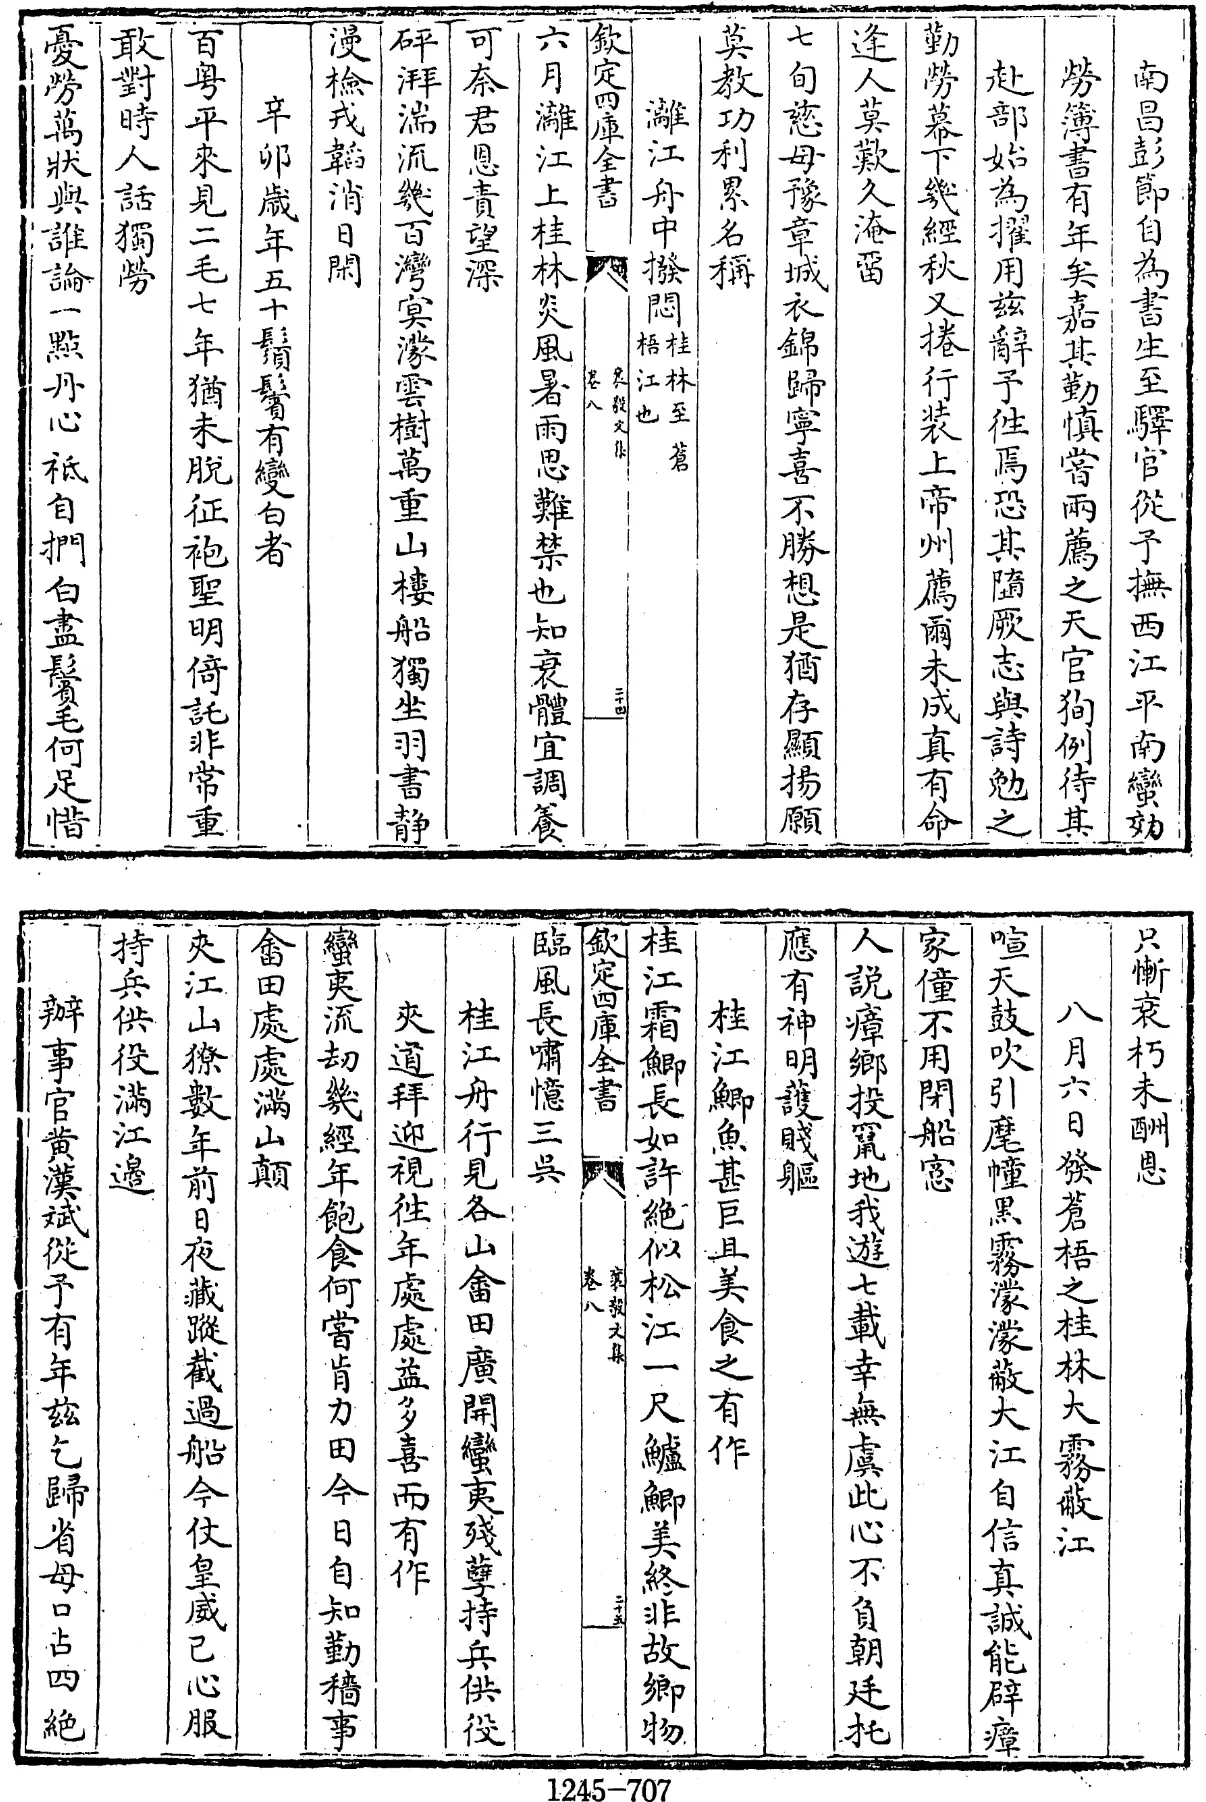 南昌彭節自為書生至驛官從予撫西江平南蠻効
勞簿書有年矣嘉其勤慎嘗兩薦之天官狥例待其
赴部始為擢用兹辭予徃焉恐其隨厥志與詩勉之
勤勞幕下幾經秋又捲行装上帝州薦爾未成真有命
逢人莫歎久淹畱
七旬慈母豫章城衣錦歸寧喜不勝想是猶存顯揚願
莫教功利累名稱
灕江舟中撥悶桂林至蒼
梧江也
欽定四庫全書
襄毅文集
卷八
二十四
六月灕江上桂林炎風暑雨思難禁也知衰體宜調養
可奈君恩責望深
砰湃湍流幾百灣寞濛雲樹萬重山樓船獨坐羽書静
漫檢戎韜消日閑
辛卯歳年五十鬚鬢有變白者
百粤平來見二毛七年猶未脫征袍聖明倚託非常重
敢對時人話獨勞
憂勞萬狀與誰論一點丹心祗自捫白盡鬂毛何足惜
只慚衰朽未酬恩
八月六日發蒼梧之桂林大霧蔽江
喧天鼓吹引麾幢黒霧濛濛蔽大江自信真誠能辟瘴
家僮不用閉船窓
人説瘴鄉投竄地我遊七載幸無虞此心不負朝廷托
應有神明護賤軀
桂江鯽魚甚巨且美食之有作
桂江霜鯽長如許絶似松江一尺鱸鯽美終非故鄉物
欽定四庫全書
襄毅文集
卷八
二十五
臨風長嘯憶三吳
桂江舟行見各山畬田廣開蠻夷殘孽持兵供役
夾道拜迎視徃年處處益多喜而有作
蠻夷流刧幾經年飽食何嘗肯力田今日自知勤穡事
畬田處處滿山顛
夾江山獠數年前日夜藏蹤截過船今仗皇威已心服
持兵供役滿江邊
辦事官黄漢斌從予有年兹乞歸省母口占四絶
1245-707